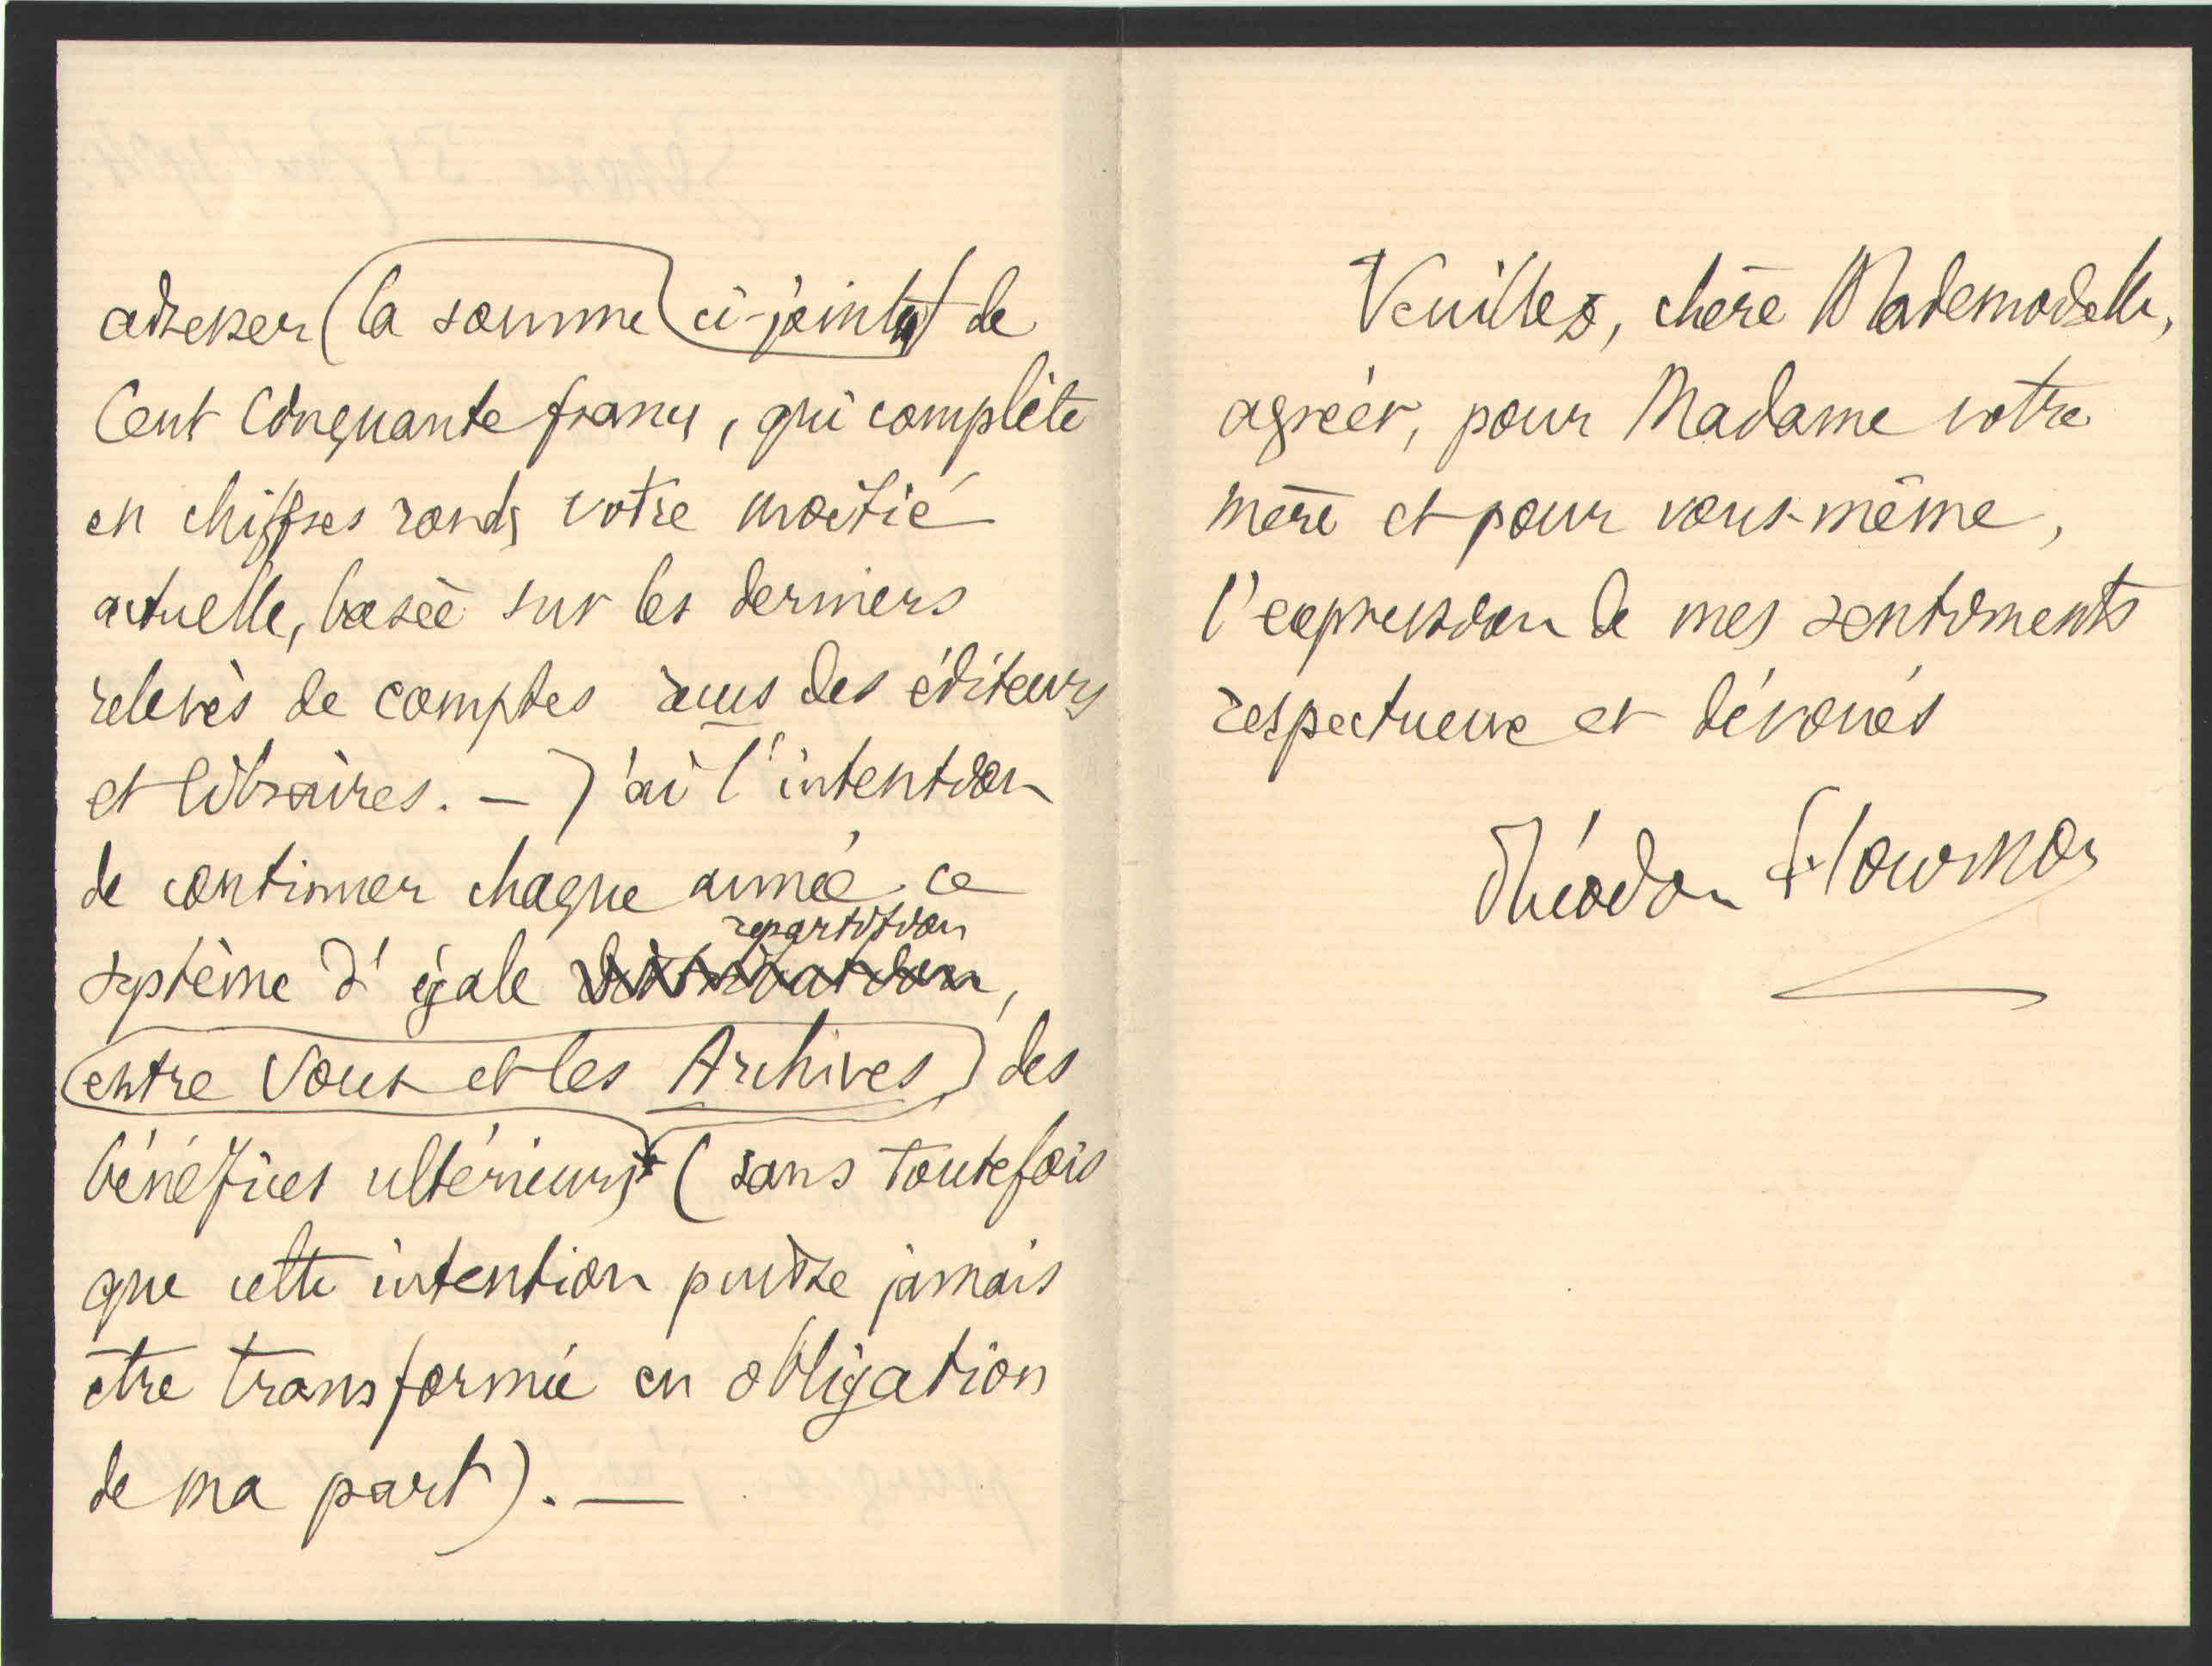 adresser (la somme ci-jointe) de
Cent Cinquante francs, qui complète
en chiffres ronds votre moitié
actuelle, basée sur les derniers
relevés de comptes reçus des éditeurs
et libraires. — J'ai l'intention
de continuer chaque année ce
répartition
système d'égale,
entre Vous et les Archives des
bénéfices ultérieurs (sans toutefois
que cette intention puisse jamais
être transformée en obligation
de ma part). —
Veuillez, chère Mademoiselle,
agréer, pour Madame votre
mère et pour vous-même,
l'expression de mes sentiments
respectueux et dévoués
Théodore Flournoy